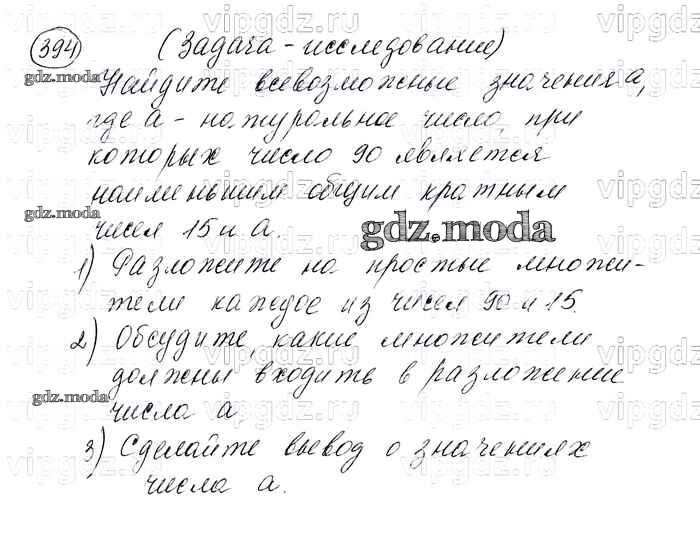 394 (Задача - исследование)
Найдите всевозможные значения а,
где а - натуральное число, при
которых число 90 является
наименьшим общим кратным
чисел 15 и а.
1) Разложите на простые множи-
тели каждое из чисел 90 и 15.
2) Обсудите, какие множители
должны входить в разложение
числа а.
3) Сделайте вывод о значениях
числа а.
gdz.moda
gdz.moda
gdz.moda
gdz.moda
vipgdz.ru